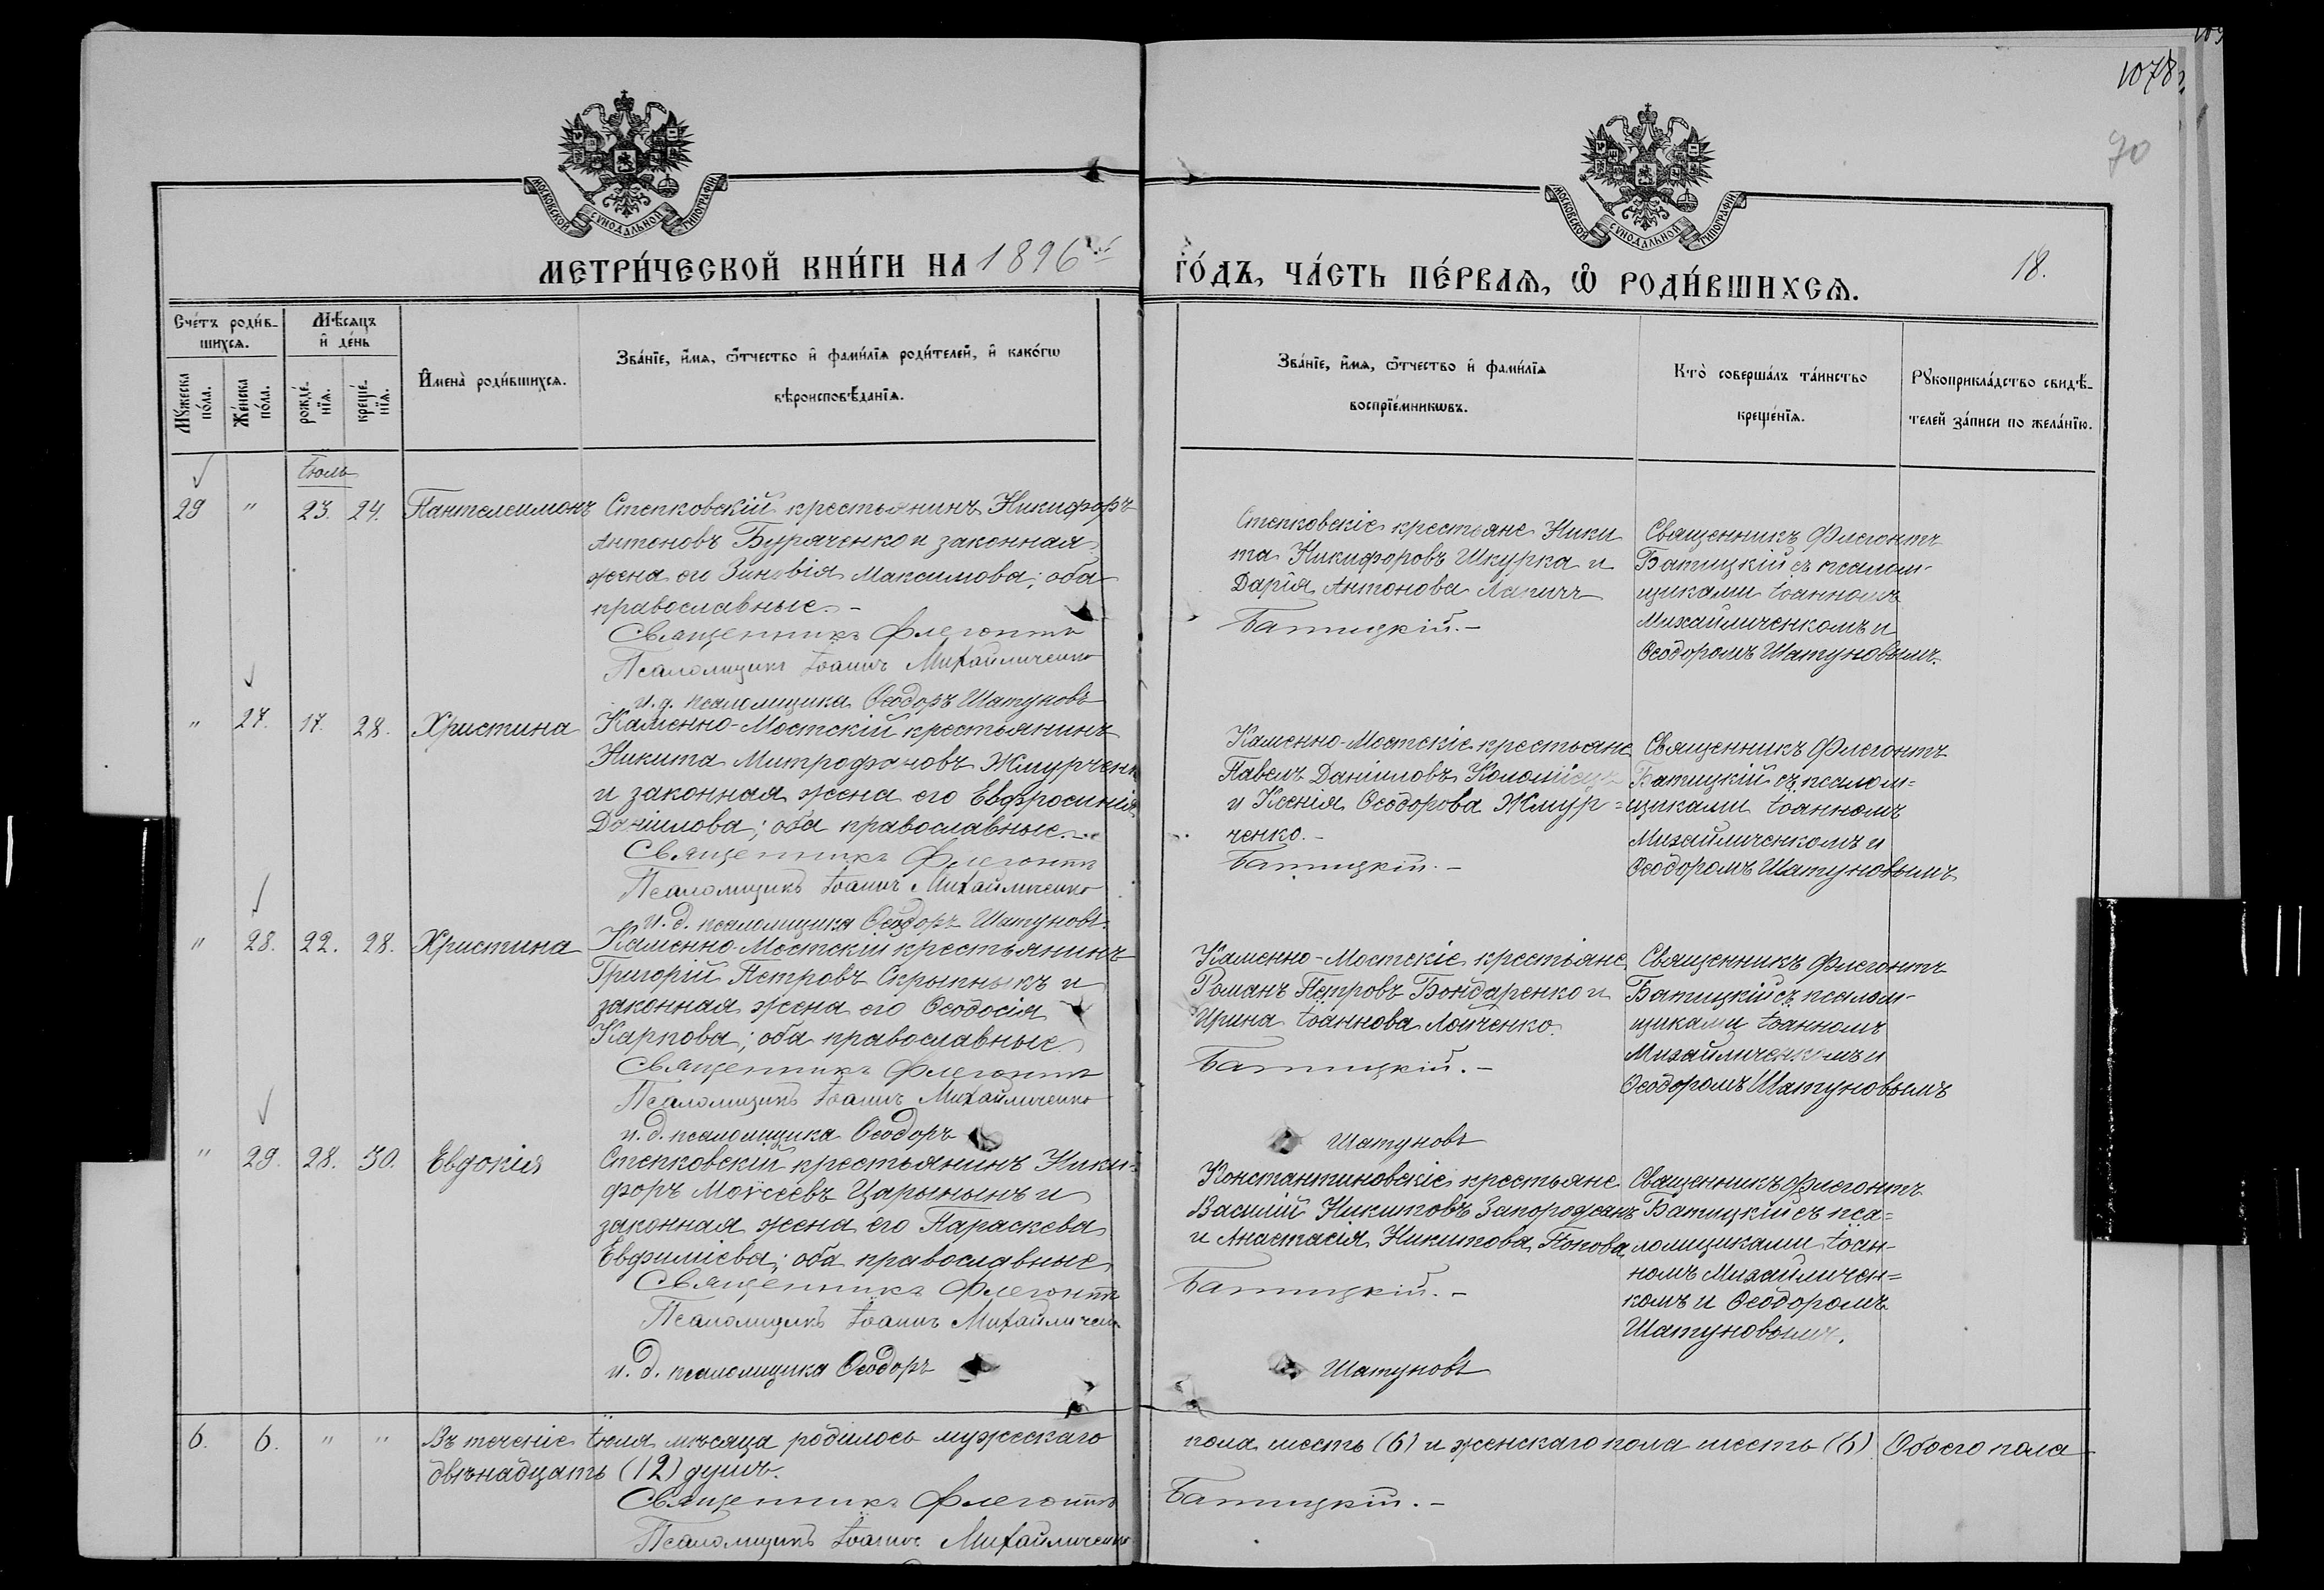 1078
70
МОСКОВСКОЙ СУНОДАЛЬНОЙ ТИПОГРАФІИ
МОСКОВСКОЙ СУНОДАЛЬНОЙ ТИПОГРАФІИ
МЕТРИ́ЧЕСКОЙ КНИ́ГИ НА 1896й
ГО́ДЪ, ЧА́СТЬ ПЕ́РВАѦ, Ѡ РОДИ́ВШИХСѦ.
18.
Сче́тъ роди́в-
шихсѧ.
Мѣ́сѧцъ
и҆ де́нь
Мꙋ́жеска по́ла.
Же́нска по́ла.
рожде́нїѧ.
креще́нїѧ.
И҆мена̀ роди́вшихсѧ.
Зва́нїе, и҆́мѧ, ѻ҆́тчество и҆ фами́лїѧ роди́телей, и҆ како́гѡ
вѣроисповѣ́данїѧ.
Зва́нїе, и҆́мѧ, ѻ҆́тчество и҆ фами́лїѧ
воспрїе́мникѡвъ.
Кто̀ соверша́лъ та́инство
креще́нїѧ.
Рꙋкоприкла́дство свидѣ́-
телей за́писи по жела́нїю.
Іюль
29 " 23. 24. Пантелеимонъ
Степковскій крестьянинъ Никифоръ
Антоновъ Бураченко и законная
жена его Зиновія Максимова; оба
православные.-
Священникъ Флегонтъ
Псаломщикъ Іоаннъ Михайличенко
и. д. псаломщика Ѳеодоръ Шатуновъ
Степковскіе крестьяне Ники
та Никифоровъ Шкурка и
Дарія Антонова Лапичъ
Батицкій.-
Священникъ Флегонтъ
Батицкій съ псалом-
щиками Іоанномъ
Михайличенкомъ и
Ѳеодоромъ Шатуновымъ.
" 27. 17. 28. Христина
Каменно-Мостскій крестьянинъ
Никита Митрофановъ Жмурченк
и законная жена его Евфросинія
Даніилова; оба православные.-
Священникъ Флегонтъ
Псаломщикъ Іоаннъ Михайличенко
и. д. псаломщика Ѳеодоръ Шатуновъ
Каменно-Мостскіе крестьяне
Павелъ Даніиловъ Коломіецъ
и Ксенія Ѳеодорова Жмур=
ченко.-
Батицкій.-
Священникъ Флегонтъ
Батицкій съ псалом=
щиками Іоанномъ
Михайличенкомъ и
Ѳеодоромъ Шатуновымъ
" 28. 22. 28. Христина
Каменно-Мостскій крестьянинъ
Григорій Петровъ Скрыпныкъ и
законная жена его Ѳеодосія
Карпова; оба православные
Священникъ Флегонтъ
Псаломщикъ Іоаннъ Михайличенко
и. д. псаломщика Ѳеодоръ
Шатуновъ
Каменно-Мостскіе крестьяне
Романъ Петровъ Бондаренко и
Ирина Іоаннова Лойченко.
Батицкій.-
Священникъ Флегонтъ
Батицкій съ псалом-
щиками Іоанномъ
Михайличенкомъ и
Ѳеодоромъ Шатуновымъ
" 29. 28. 30. Евдокія
Степковскій крестьянинъ Ники-
форъ Моѵсеевъ Царынынъ и
законная жена его Параскева
Евфиміева; оба православные
Священникъ Флегонтъ
Псаломщикъ Іоаннъ Михайличен
и. д. псаломщика Ѳеодоръ
Шатуновъ
Константиновскіе крестьяне
Василій Никитовъ Запорожанъ
и Анастасія Никитова Попова
Батицкій.-
Священникъ Флегонтъ
Батицкій съ пса=
ломщиками Іоан-
номъ Михайличен=
комъ и Ѳеодоромъ
Шатуновымъ.
6. 6. " " Въ теченіе Іюля мѣсяца родилось мужескаго
пола шесть (6) и женскаго пола шесть (6). Обоего пола
двѣнадцать (12) душъ.
Священникъ Флегонтъ
Батицкій.-
Псаломщикъ Іоаннъ Михайличенко